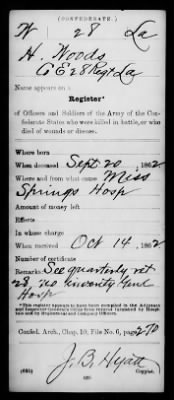 (CONFEDERATE.)
W 28 La
H. Woods
Co E 28 Regt La
Name appears on a
Register*
of Officers and Soldiers of the Army of the Con-
federate States who were killed in battle, or who
died of wounds or disease.
Where born
When deceased Sept 20, 1862
Where and from what cause Miss
Springs Hosp
Amount of money left
Effects
In whose charge
When received Oct 14, 1862
Number of certificate
Remarks: See quarterly ret
28, no inventy
Hosp
*This register appears to have been compiled in the Adjutant
and Inspector General's Office from returns furnished by Hospi-
tals and by Regimental and Company Officers.
Confed. Arch., Chap. 10, File No. 6, page 270
J. B. Hyatt
Copyist.